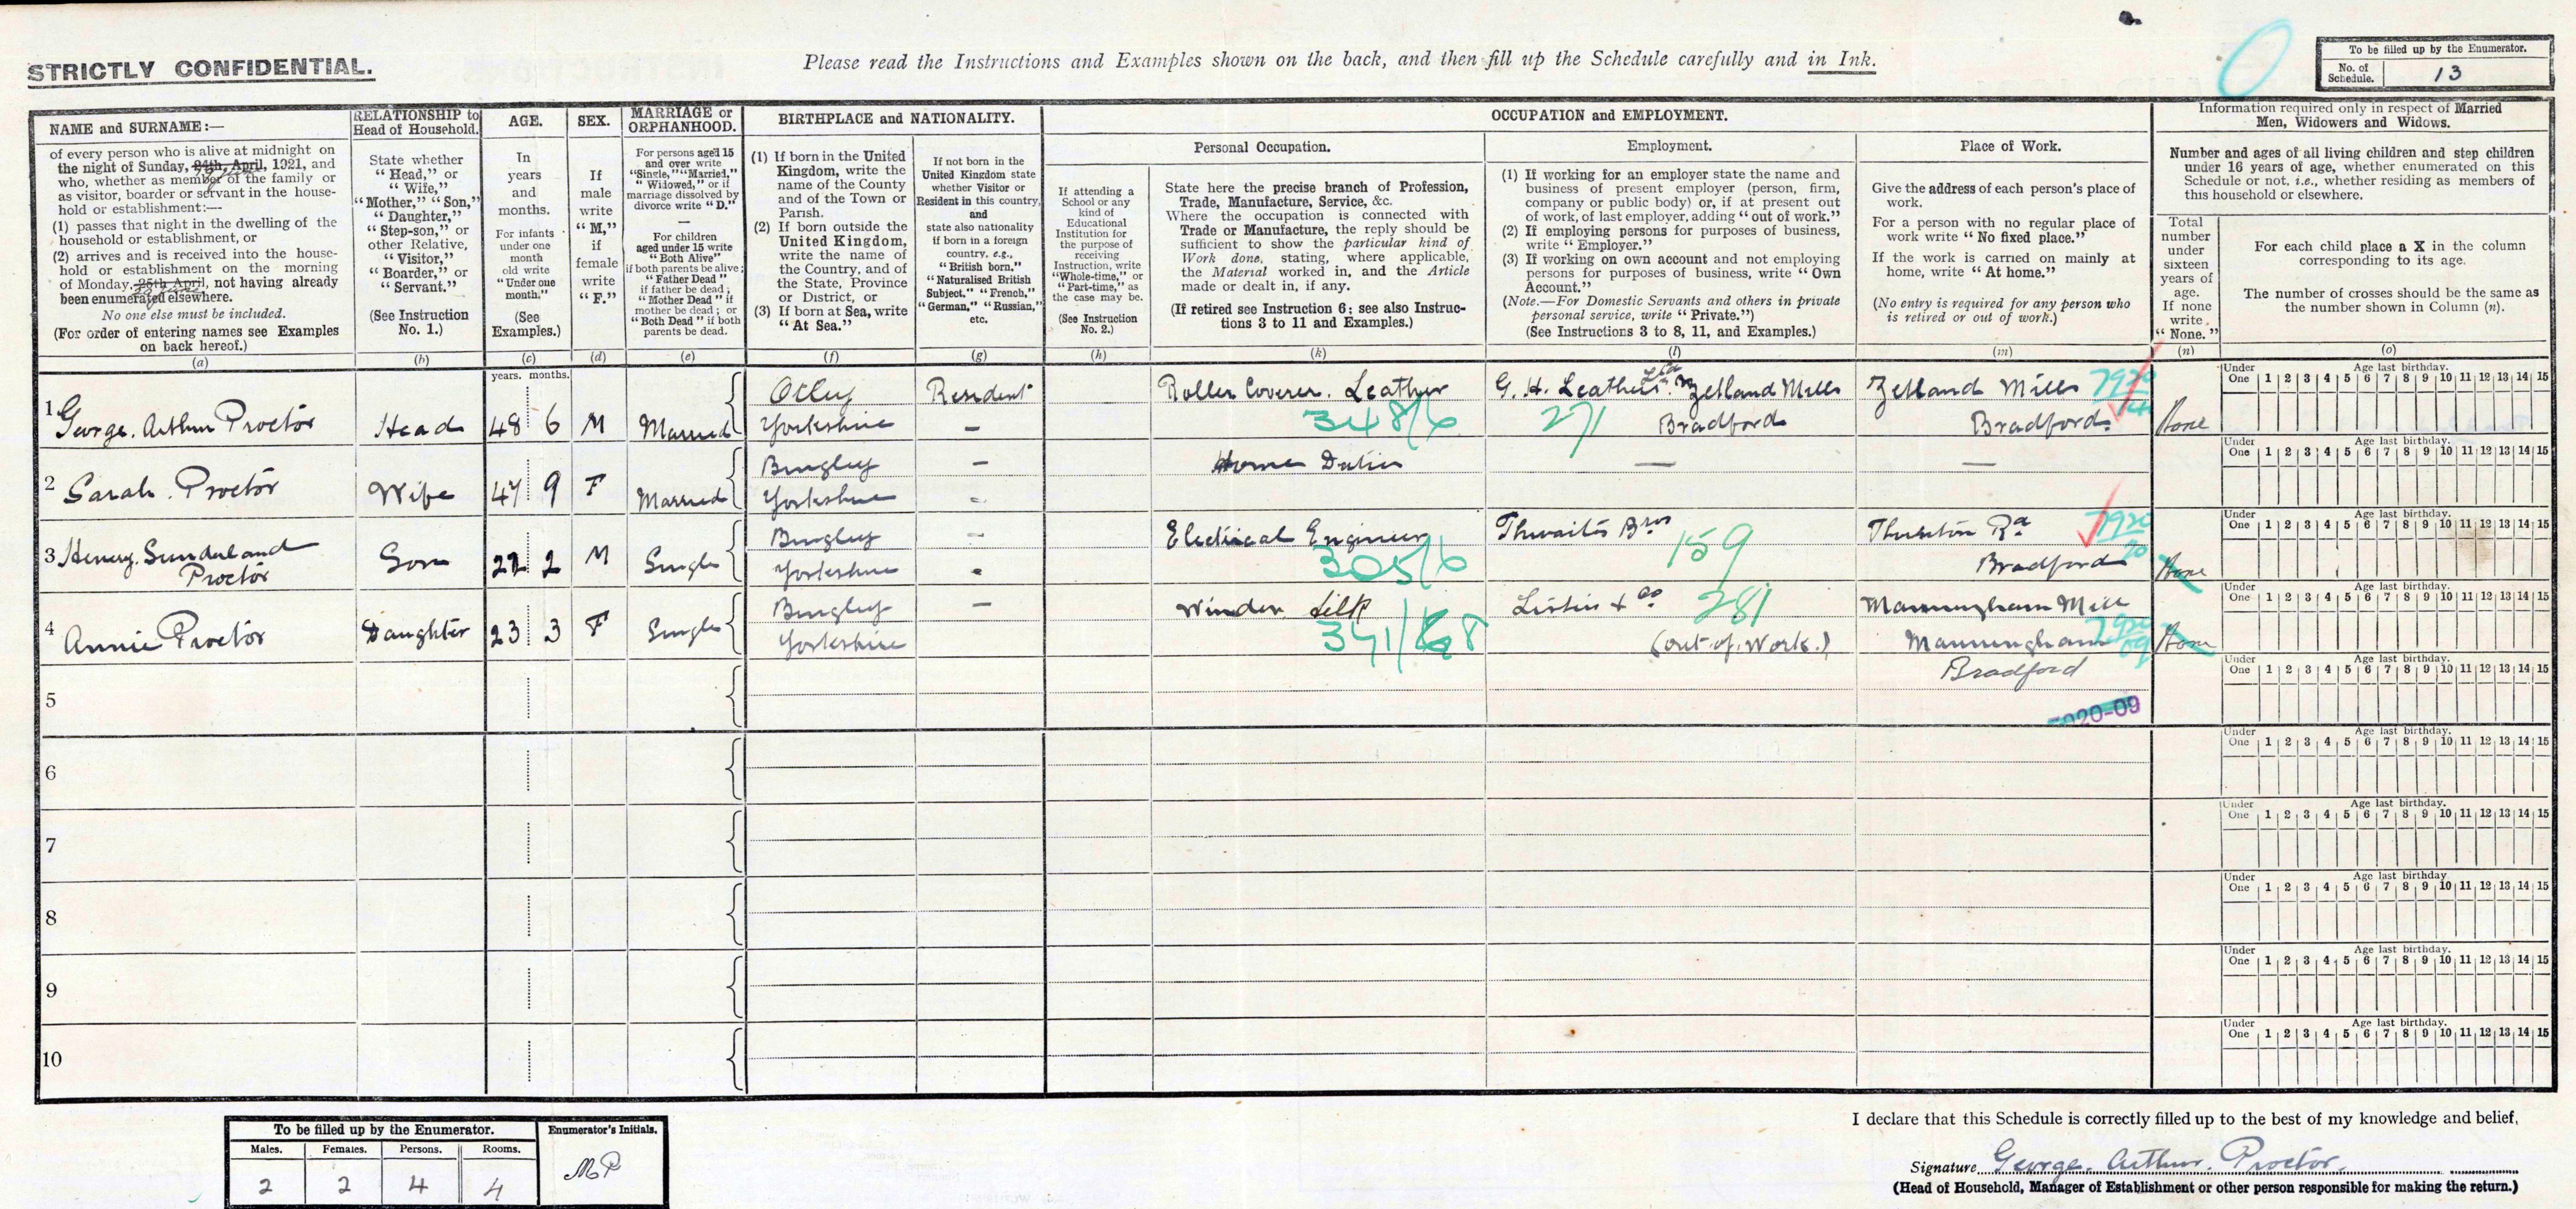 STRICTLY CONFIDENTIAL.
Please read the Instructions and Examples shown on the back, and then fill up the Schedule carefully and in Ink.
To be filled up by the Enumerator.
No. of Schedule. 13
NAME and SURNAME:—
of every person who is alive at midnight on
the night of Sunday, 24th, April, 1921, and
who, whether as member of the family or
as visitor, boarder or servant in the house-
hold or establishment:—
(1) passes that night in the dwelling of the
household or establishment, or
(2) arrives and is received into the house-
hold or establishment on the morning
of Monday, 25th April, not having already
been enumerated elsewhere.
No one else must be included.
(For order of entering names see Examples
on back hereof.)
(a)
RELATIONSHIP to
Head of Household.
State whether
"Head," or
"Wife,"
"Mother," "Son,"
"Daughter,"
"Step-son," or
other Relative,
"Visitor,"
"Boarder," or
"Servant."
(See Instruction
No. 1.)
(b)
AGE.
In
years
and
months.
For infants
under one
month
old write
"Under one
month."
(See
Examples.)
(c)
SEX.
If
male
write
"M,"
if
female
write
"F."
(d)
MARRIAGE or
ORPHANHOOD.
For persons aged 15
and over write
"Single," "Married,"
"Widowed," or if
marriage dissolved by
divorce write "D."
—
For children
aged under 15 write
"Both Alive"
if both parents be alive;
"Father Dead"
if father be dead;
"Mother Dead" if
mother be dead; or
"Both Dead" if both
parents be dead.
(e)
BIRTHPLACE and NATIONALITY.
(1) If born in the United
Kingdom, write the
name of the County
and of the Town or
Parish.
(2) If born outside the
United Kingdom,
write the name of
the Country, and of
the State, Province
or District, or
(3) If born at Sea, write
"At Sea."
(f)
If not born in the
United Kingdom state
whether Visitor or
Resident in this country,
and
state also nationality
if born in a foreign
country, e.g.,
"British born,"
"Naturalised British
Subject," "French,"
"German," "Russian,"
etc.
(g)
OCCUPATION and EMPLOYMENT.
Personal Occupation.
If attending a
School or any
kind of
Educational
Institution for
the purpose of
receiving
Instruction, write
"Whole-time," or
"Part-time," as
the case may be.
(See Instruction
No. 2.)
(h)
State here the precise branch of Profession,
Trade, Manufacture, Service, &c.
Where the occupation is connected with
Trade or Manufacture, the reply should be
sufficient to show the particular kind of
Work done, stating, where applicable,
the Material worked in, and the Article
made or dealt in, if any.
(If retired see Instruction 6; see also Instruc-
tions 3 to 11 and Examples.)
(k)
Employment.
(1) If working for an employer state the name and
business of present employer (person, firm,
company or public body) or, if at present out
of work, of last employer, adding "out of work."
(2) If employing persons for purposes of business,
write "Employer."
(3) If working on own account and not employing
persons for purposes of business, write "Own
Account."
(Note.—For Domestic Servants and others in private
personal service, write "Private.")
(See Instructions 3 to 8, 11, and Examples.)
(l)
Place of Work.
Give the address of each person's place of
work.
For a person with no regular place of
work write "No fixed place."
If the work is carried on mainly at
home, write "At home."
(No entry is required for any person who
is retired or out of work.)
(m)
Information required only in respect of Married
Men, Widowers and Widows.
Number and ages of all living children and step children
under 16 years of age, whether enumerated on this
Schedule or not, i.e., whether residing as members of
this household or elsewhere.
Total
number
under
sixteen
years of
age.
If none
write
"None."
(n)
For each child place a X in the column
corresponding to its age.
The number of crosses should be the same as
the number shown in Column (n).
(o)
years. months.
1 George. Arthur Proctor Head 48 6 M Married Otley Yorkshire Resident – Roller Coverer. Leather 348/6 G. H. Leather Ltd Zetland Mills Bradford 271 Zetland Mills Bradford None
Under One Age last birthday. 1 2 3 4 5 6 7 8 9 10 11 12 13 14 15
2 Sarah. Proctor Wife 47 9 F Married Bingley Yorkshire – – Home Duties — —
Under One Age last birthday. 1 2 3 4 5 6 7 8 9 10 11 12 13 14 15
3 Henry. Sunderland Proctor Son 22 2 M Single Bingley Yorkshire – – Electrical Engineer 305/6 Thwaites Bros 159 Thornton Rd Bradford None
Under One Age last birthday. 1 2 3 4 5 6 7 8 9 10 11 12 13 14 15
4 Annie Proctor Daughter 23 3 F Single Bingley Yorkshire – Winder Silk Listers & Co 281 (out. of. Work.) Manningham Mill Manningham Bradford None
Under One Age last birthday. 1 2 3 4 5 6 7 8 9 10 11 12 13 14 15
5
Under One Age last birthday. 1 2 3 4 5 6 7 8 9 10 11 12 13 14 15
6
Under One Age last birthday. 1 2 3 4 5 6 7 8 9 10 11 12 13 14 15
7
Under One Age last birthday. 1 2 3 4 5 6 7 8 9 10 11 12 13 14 15
8
Under One Age last birthday 1 2 3 4 5 6 7 8 9 10 11 12 13 14 15
9
Under One Age last birthday. 1 2 3 4 5 6 7 8 9 10 11 12 13 14 15
10
Under One Age last birthday. 1 2 3 4 5 6 7 8 9 10 11 12 13 14 15
To be filled up by the Enumerator.
Males. Females. Persons. Rooms.
2 2 4 4
Enumerator's Initials.
MP
I declare that this Schedule is correctly filled up to the best of my knowledge and belief,
Signature George. Arthur. Proctor.
(Head of Household, Manager of Establishment or other person responsible for making the return.)